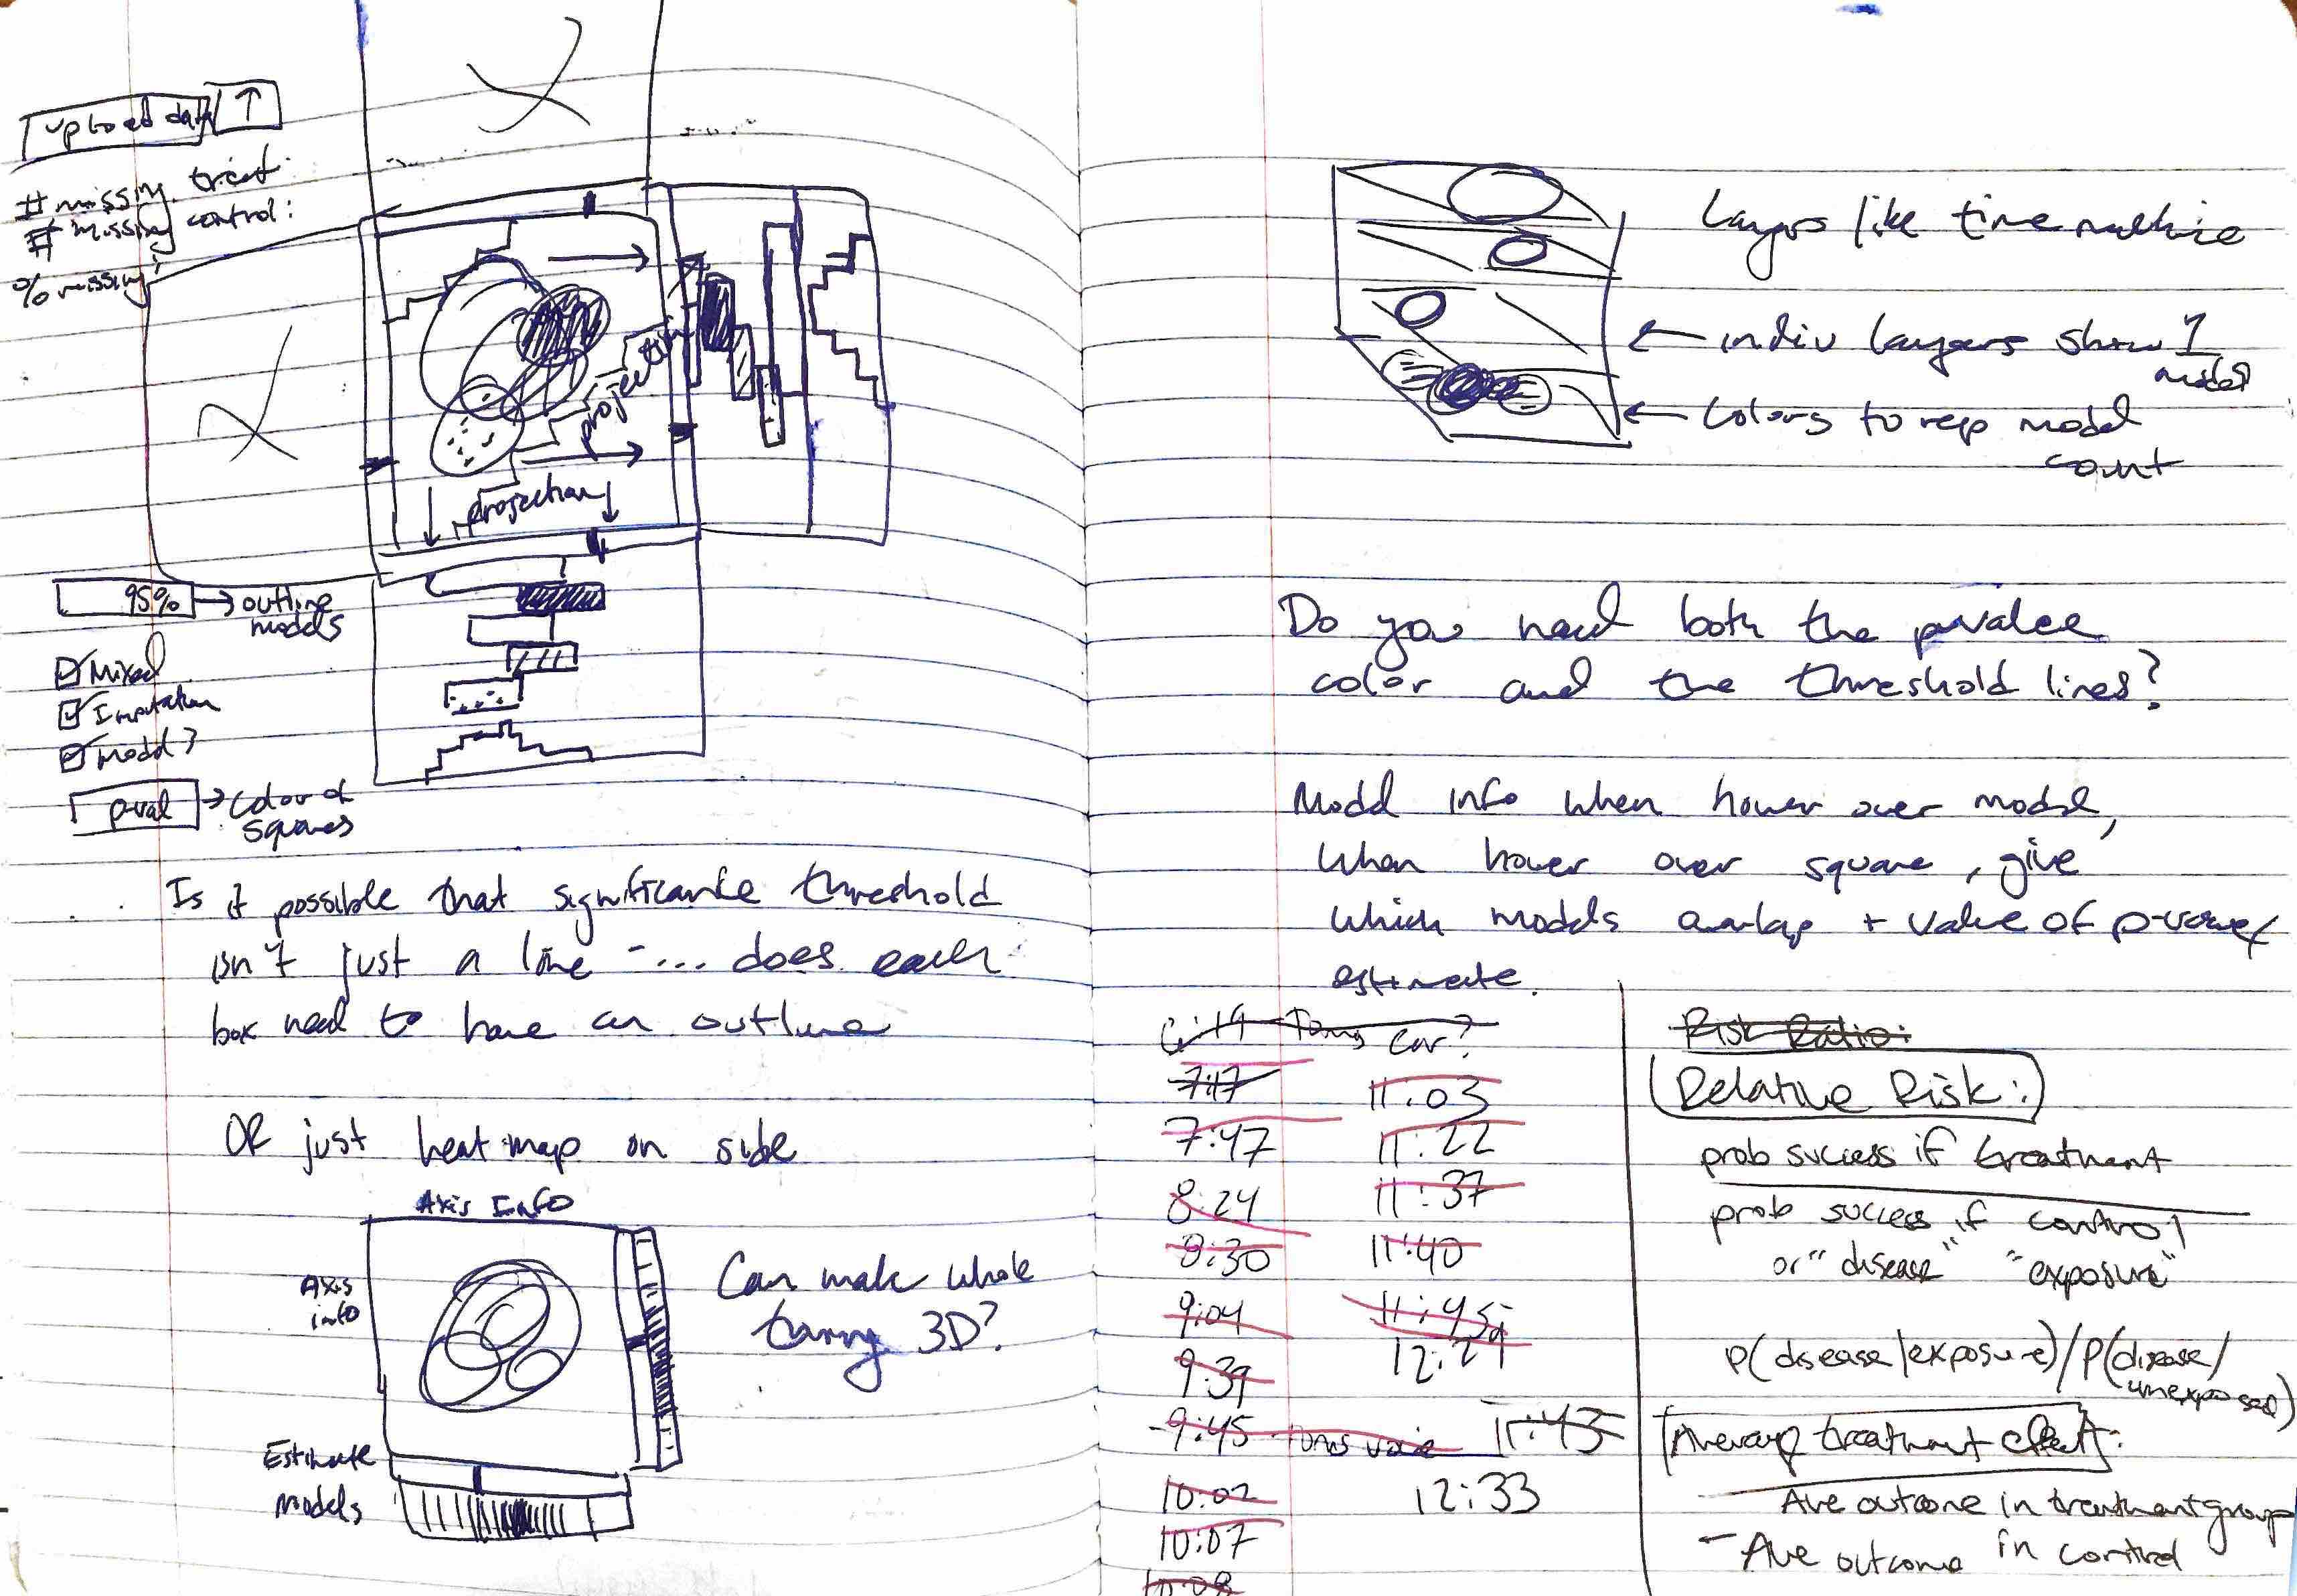 upload data ↑
# missing treat:
# missing control:
% missing:
projection
projection
95% → outline
models
Mixed
Imputation
Model?
p-val → color of
squares
Is it possible that significance threshold
isn't just a line -... does each
box need to have an outline
OR just heat map on side
Axis Info
Axis
info
Can make whole
3D?
Estimate
Models
Layers like time machine
← indiv layers show 1
model
← Colors to rep model
count
Do you need both the pvalue
color and the threshold lines?
Model info when hover over model,
when hover over square, give
which models overlap + value of p-value/
estimate.
car?
7:17
11:03
7:47
11:22
8:24
11:37
8:30
11:40
9:04
11:45
9:39
12:29
9:45
11:43
10:02
12:33
10:07
10:08
Risk Ratio:
Relative Risk:
prob success if treatment
prob success if control
or "disease" "exposure"
P(disease/exposure)/P(disease/
unexposed)
Average treatment effect:
Ave outcome in treatment group
- Ave outcome in control